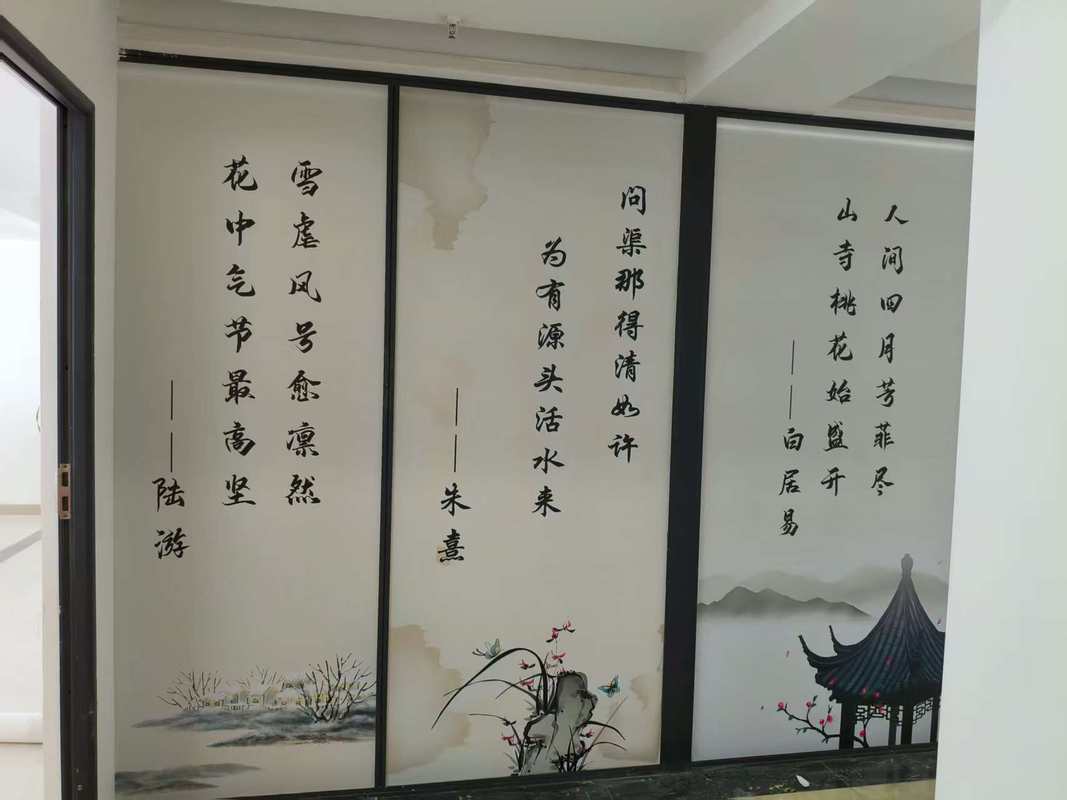 人间四月芳菲尽
山寺桃花始盛开
——白居易
问渠那得清如许
为有源头活水来
——朱熹
雪虐风号愈凛然
花中气节最高坚
——陆游